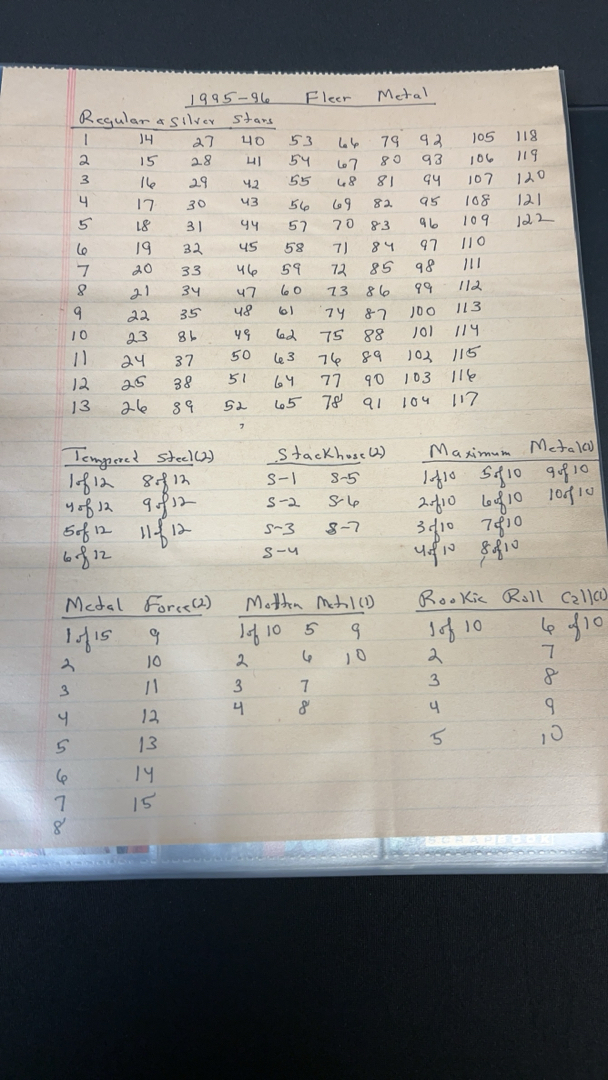 1995-96 Fleer Metal
Regular & Silver Stars
1 14 27 40 53 66 79 92 105 118
2 15 28 41 54 67 80 93 106 119
3 16 29 42 55 68 81 94 107 120
4 17 30 43 56 69 82 95 108 121
5 18 31 44 57 70 83 96 109 122
6 19 32 45 58 71 84 97 110
7 20 33 46 59 72 85 98 111
8 21 34 47 60 73 86 99 112
9 22 35 48 61 74 87 100 113
10 23 36 49 62 75 88 101 114
11 24 37 50 63 76 89 102 115
12 25 38 51 64 77 90 103 116
13 26 39 52 65 78 91 104 117
Tempered Steel(2) Stackhouse(2) Maximum Metal(1)
1 of 12 8 of 12 S-1 S-5 1 of 10 5 of 10 9 of 10
4 of 12 9 of 12 S-2 S-6 2 of 10 6 of 10 10 of 10
5 of 12 11 of 12 S-3 S-7 3 of 10 7 of 10
6 of 12 S-4 4 of 10 8 of 10
Metal Force(2) Molten Metal(1) Rookie Roll Call(1)
1 of 15 9 1 of 10 5 9 1 of 10 6 of 10
2 10 2 6 10 2 7
3 11 3 7 3 8
4 12 4 8 4 9
5 13 5 10
6 14
7 15
8